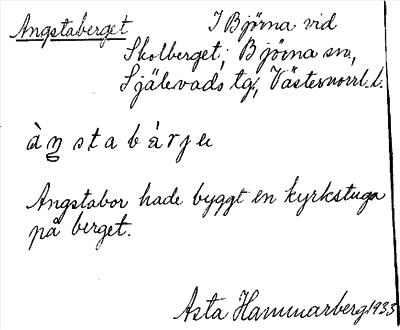 Angstaberget I Björna vid
Skolberget; Björna sn,
Själevads tg, Västernorrl. l.
àŋstabárje
Angstabor hade byggt en kyrkstuga
på berget.
Asta Hammarberg 1933